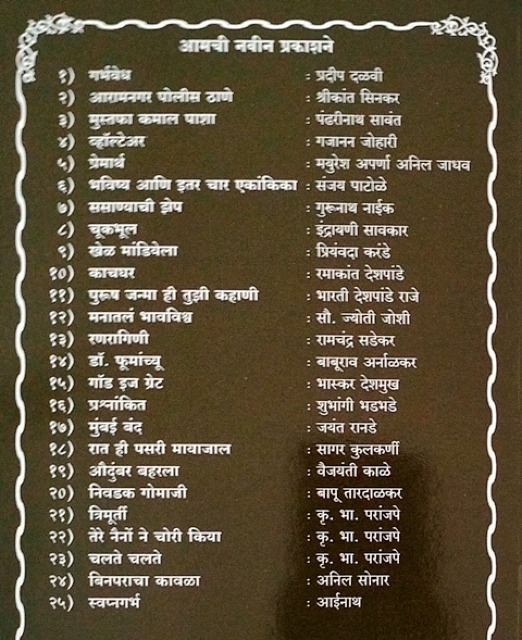 आमची नवीन प्रकाशने
१) गर्भवेध : प्रदीप दळवी
२) आरामनगर पोलीस ठाणे : श्रीकांत सिनकर
३) मुस्तफा कमाल पाशा : पंढरीनाथ सावंत
४) व्हॉल्टेअर : गजानन जोहारी
५) प्रेमार्थ : मयुरेश अपर्णा अनिल जाधव
६) भविष्य आणि इतर चार एकांकिका : संजय पाटोळे
७) ससाण्याची झेप : गुरूनाथ नाईक
८) चूकभूल : इंद्रायणी सावकार
९) खेळ मांडियेला : प्रियंवदा करंडे
१०) काचघर : रमाकांत देशपांडे
११) पुरूष जन्मा ही तुझी कहाणी : भारती देशपांडे राजे
१२) मनातलं भावविश्व : सौ. ज्योती जोशी
१३) रणरागिणी : रामचंद्र सडेकर
१४) डॉ. फूमांच्यू : बाबूराव अर्नाळकर
१५) गॉड इज ग्रेट : भास्कर देशमुख
१६) प्रश्नांकित : शुभांगी भडभडे
१७) मुंबई बंद : जयंत रानडे
१८) रात ही पसरी मायाजाल : सागर कुलकर्णी
१९) औदुंबर बहरला : वैजयंती काळे
२०) निवडक गोमाजी : बापू तारदाळकर
२१) त्रिमूर्ती : कृ. भा. परांजपे
२२) तेरे नैनों ने चोरी किया : कृ. भा. परांजपे
२३) चलते चलते : कृ. भा. परांजपे
२४) बिनपराचा कावळा : अनिल सोनार
२५) स्वप्नगर्भ : आईनाथ